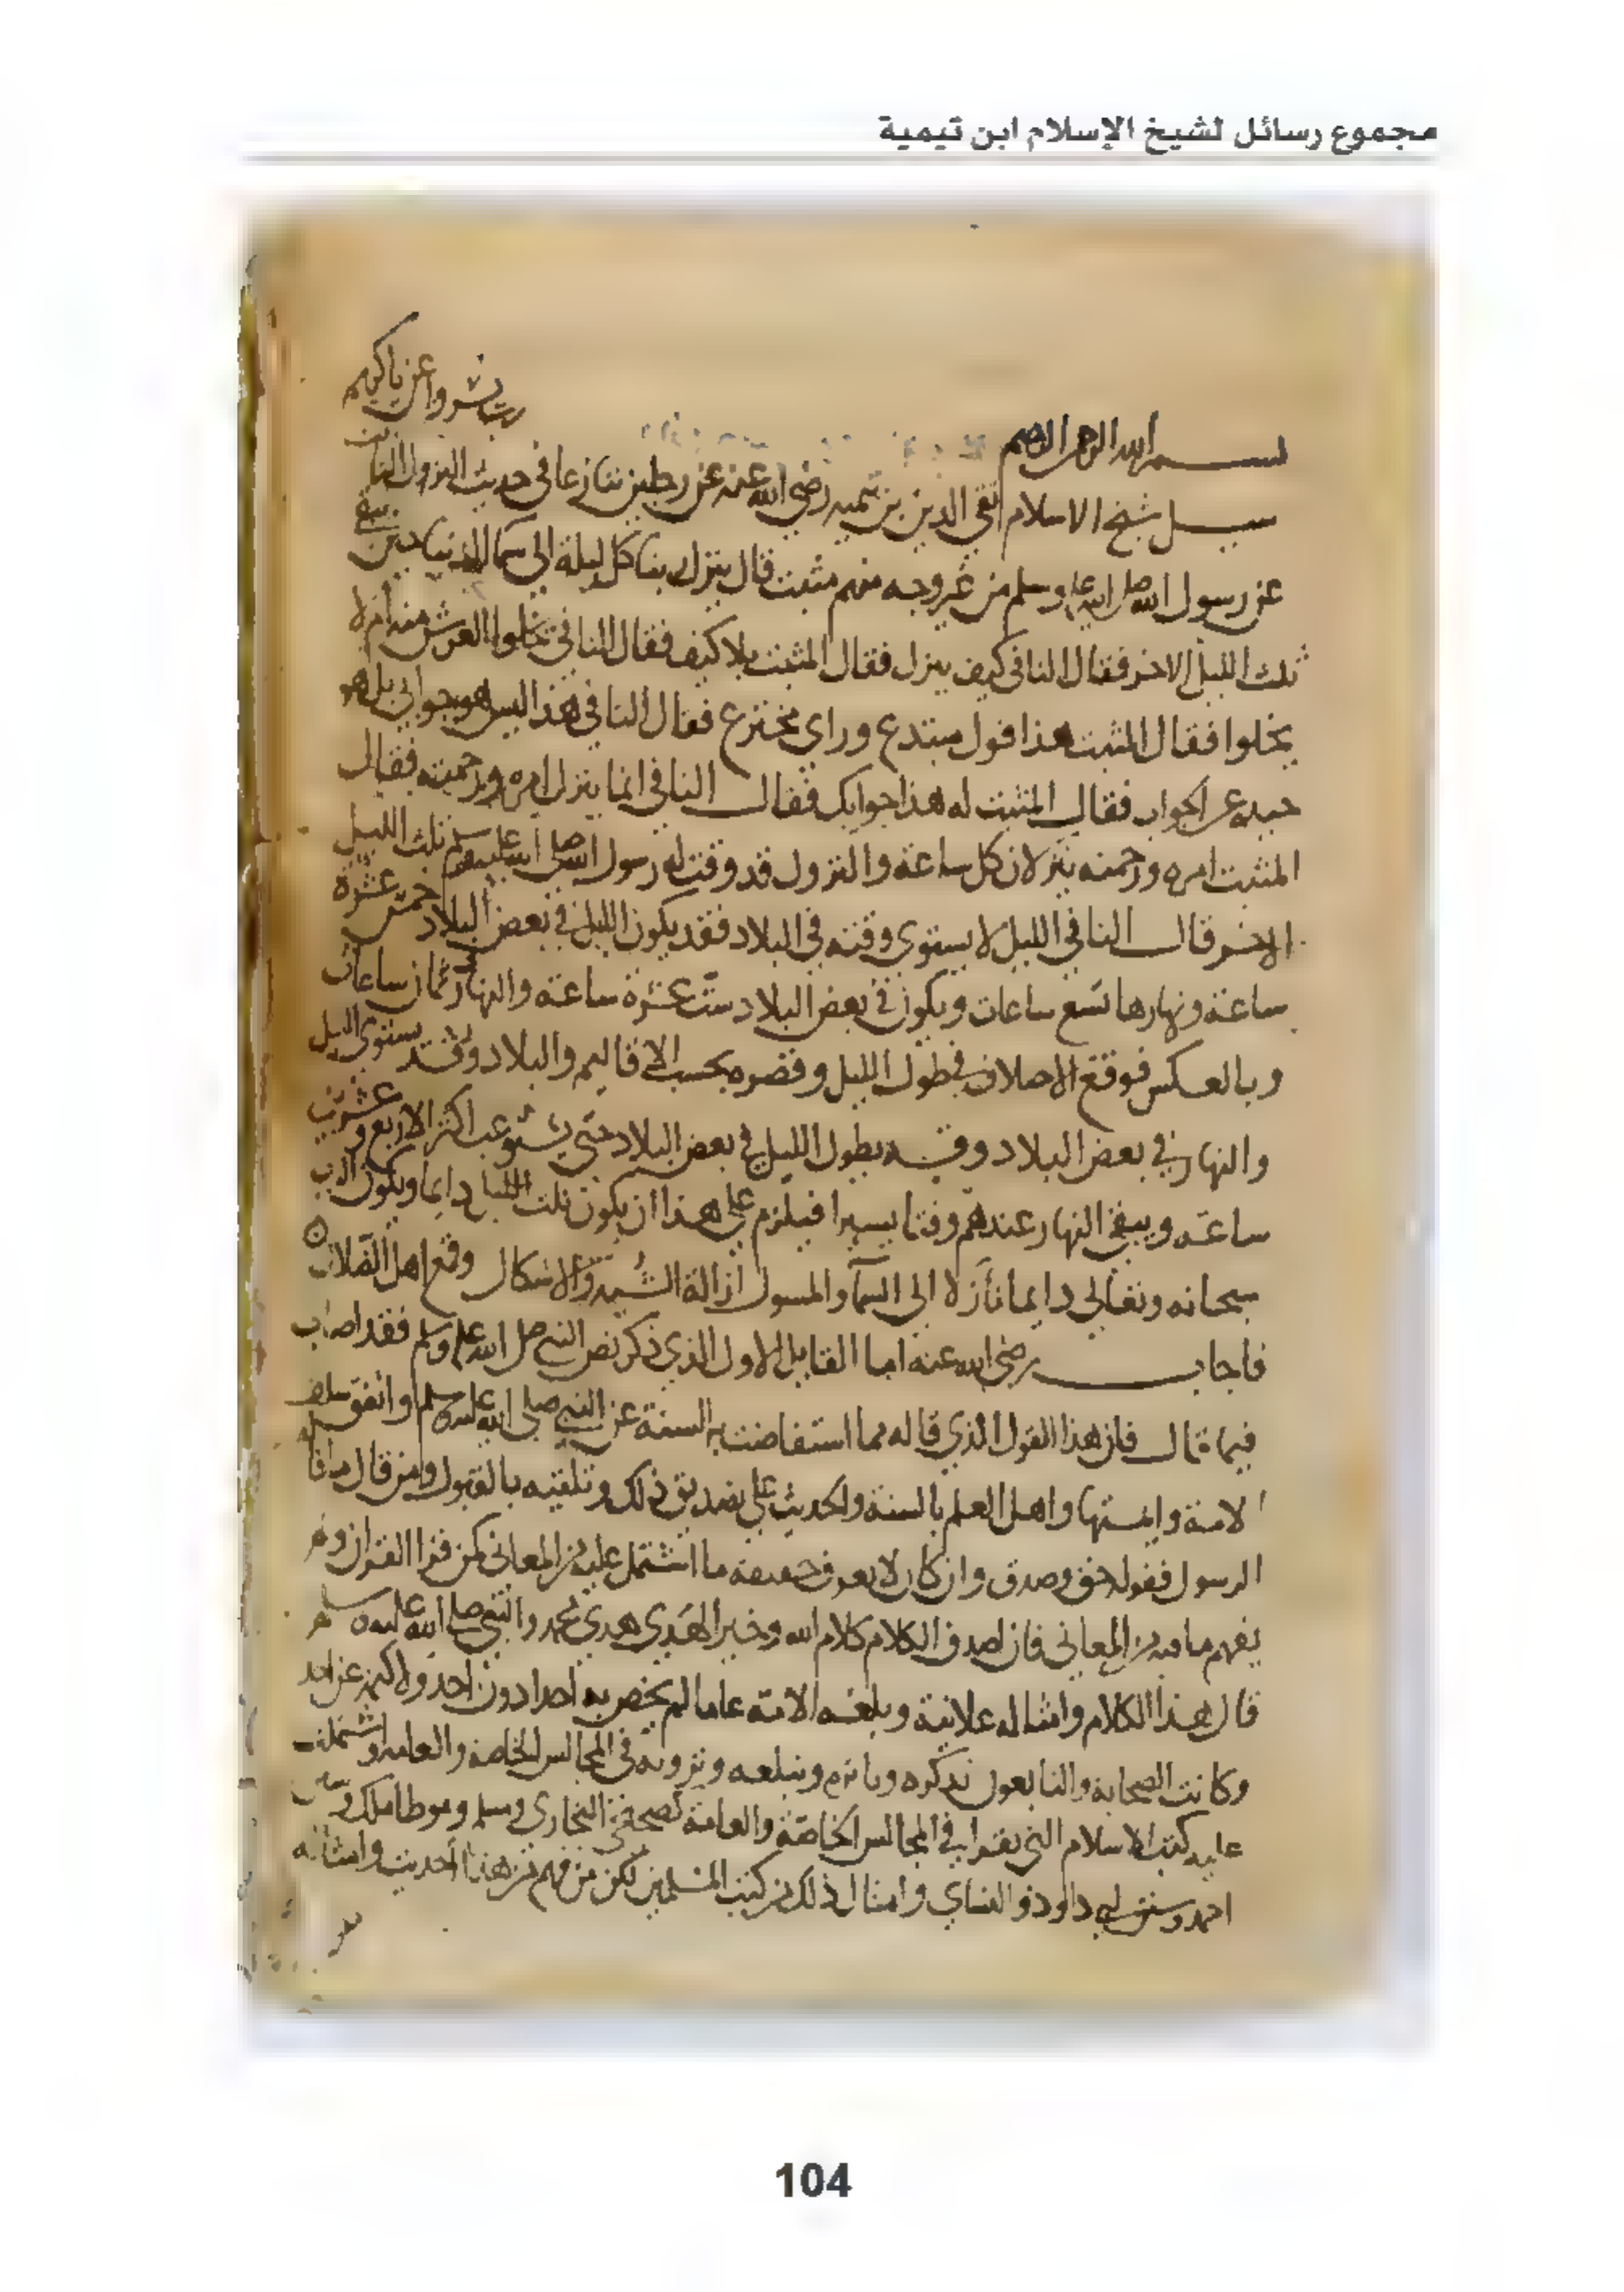 مجموع رسائل لشيخ الإسلام ابن تيمية
رب يسر واعن ياكريم
بسم الله الرحمن الرحيم
سيل شيخ الاسلام تقي الدين بن تيميه رضي الله عنه عن رجلين تنازعا في حديث النزول الثابت
عن رسول الله صلى الله عليه وسلم من غير وجه منهم مثبت قال ينزل ربنا كل ليلة الى سما الدنيا حين يبقى
ثلث الليل الاخر فقال النافي كيف ينزل فقال المثبت بلا كيف فقال النافي يخلوا العرش منه ام لا
يخلوا فقال المثبت هذا قول مبتدع وراي مخترع فقال النافي هذا ليس هو جوابي بل هو
حيده عن الجواب فقال المثبت له هذا جوابك فقال النافي انما ينزل امره ورحمته فقال
المثبت امره ورحمته ينزلان كل ساعة والنزول قد وقت له رسول الله صلى الله عليه وسلم ثلث الليل
الاخر قال النافي الليل لا يستوى وقته في البلاد فقد يكون الليل في بعض البلاد خمس عشرة
ساعة ونهارها تسع ساعات ويكون في بعض البلاد ست عشرة ساعة والنهار ثمان ساعات
وبالعكس فوقع الاختلاف في طول الليل وقصره بحسب الاقاليم والبلاد وقد يستوى الليل
والنهار في بعض البلاد وقد يطول الليل في بعض البلاد حتى يستوعب اكثر الاربع وعشرين
ساعة ويبقى النهار عندهم وقتا يسيرا فيلزم على هذا ان يكون ثلث الليل دايما ويكون الرب
سبحانه وتعالى دايما نازلا الى السما والمسول ازالة الشبه والاشكال وقمع اهل الضلال
فاجاب رضي الله عنه اما القايل الاول الذي ذكر نص النبي صلى الله عليه وسلم فقد اصاب
فيما قال فان هذا القول الذي قاله مما استفاضت به السنة عن النبي صلى الله عليه وسلم واتفق سلف
الامة وايمتها واهل العلم بالسنة والحديث على تصديق ذلك وتلقيه بالقبول ومن قال ما قاله
الرسول فقوله حق وصدق وان كان لا يعرف حقيقة ما اشتمل عليه من المعاني كمن قرا القران ولم
يفهم ما فيه من المعاني فان اصدق الكلام كلام الله وخير الهدي هدي محمد والنبي صلى الله عليه وسلم
قال هذا الكلام وامثاله علانية وبلغه الامة عاما لم يخص به احدا دون احد ولا كتمه عن احد
وكانت الصحابة والتابعون تذكره وتاثره وتبلغه وترويه في المجالس الخاصة والعامه واشتملت
عليه كتب الاسلام التي تقرا في المجالس الخاصة والعامة كصحيحي البخاري ومسلم وموطا مالك ومسند
احمد وسنن ابي داود والنساي وامثال ذلك من كتب المسلمين لكن من فهم من هذا الحديث وامثاله
104